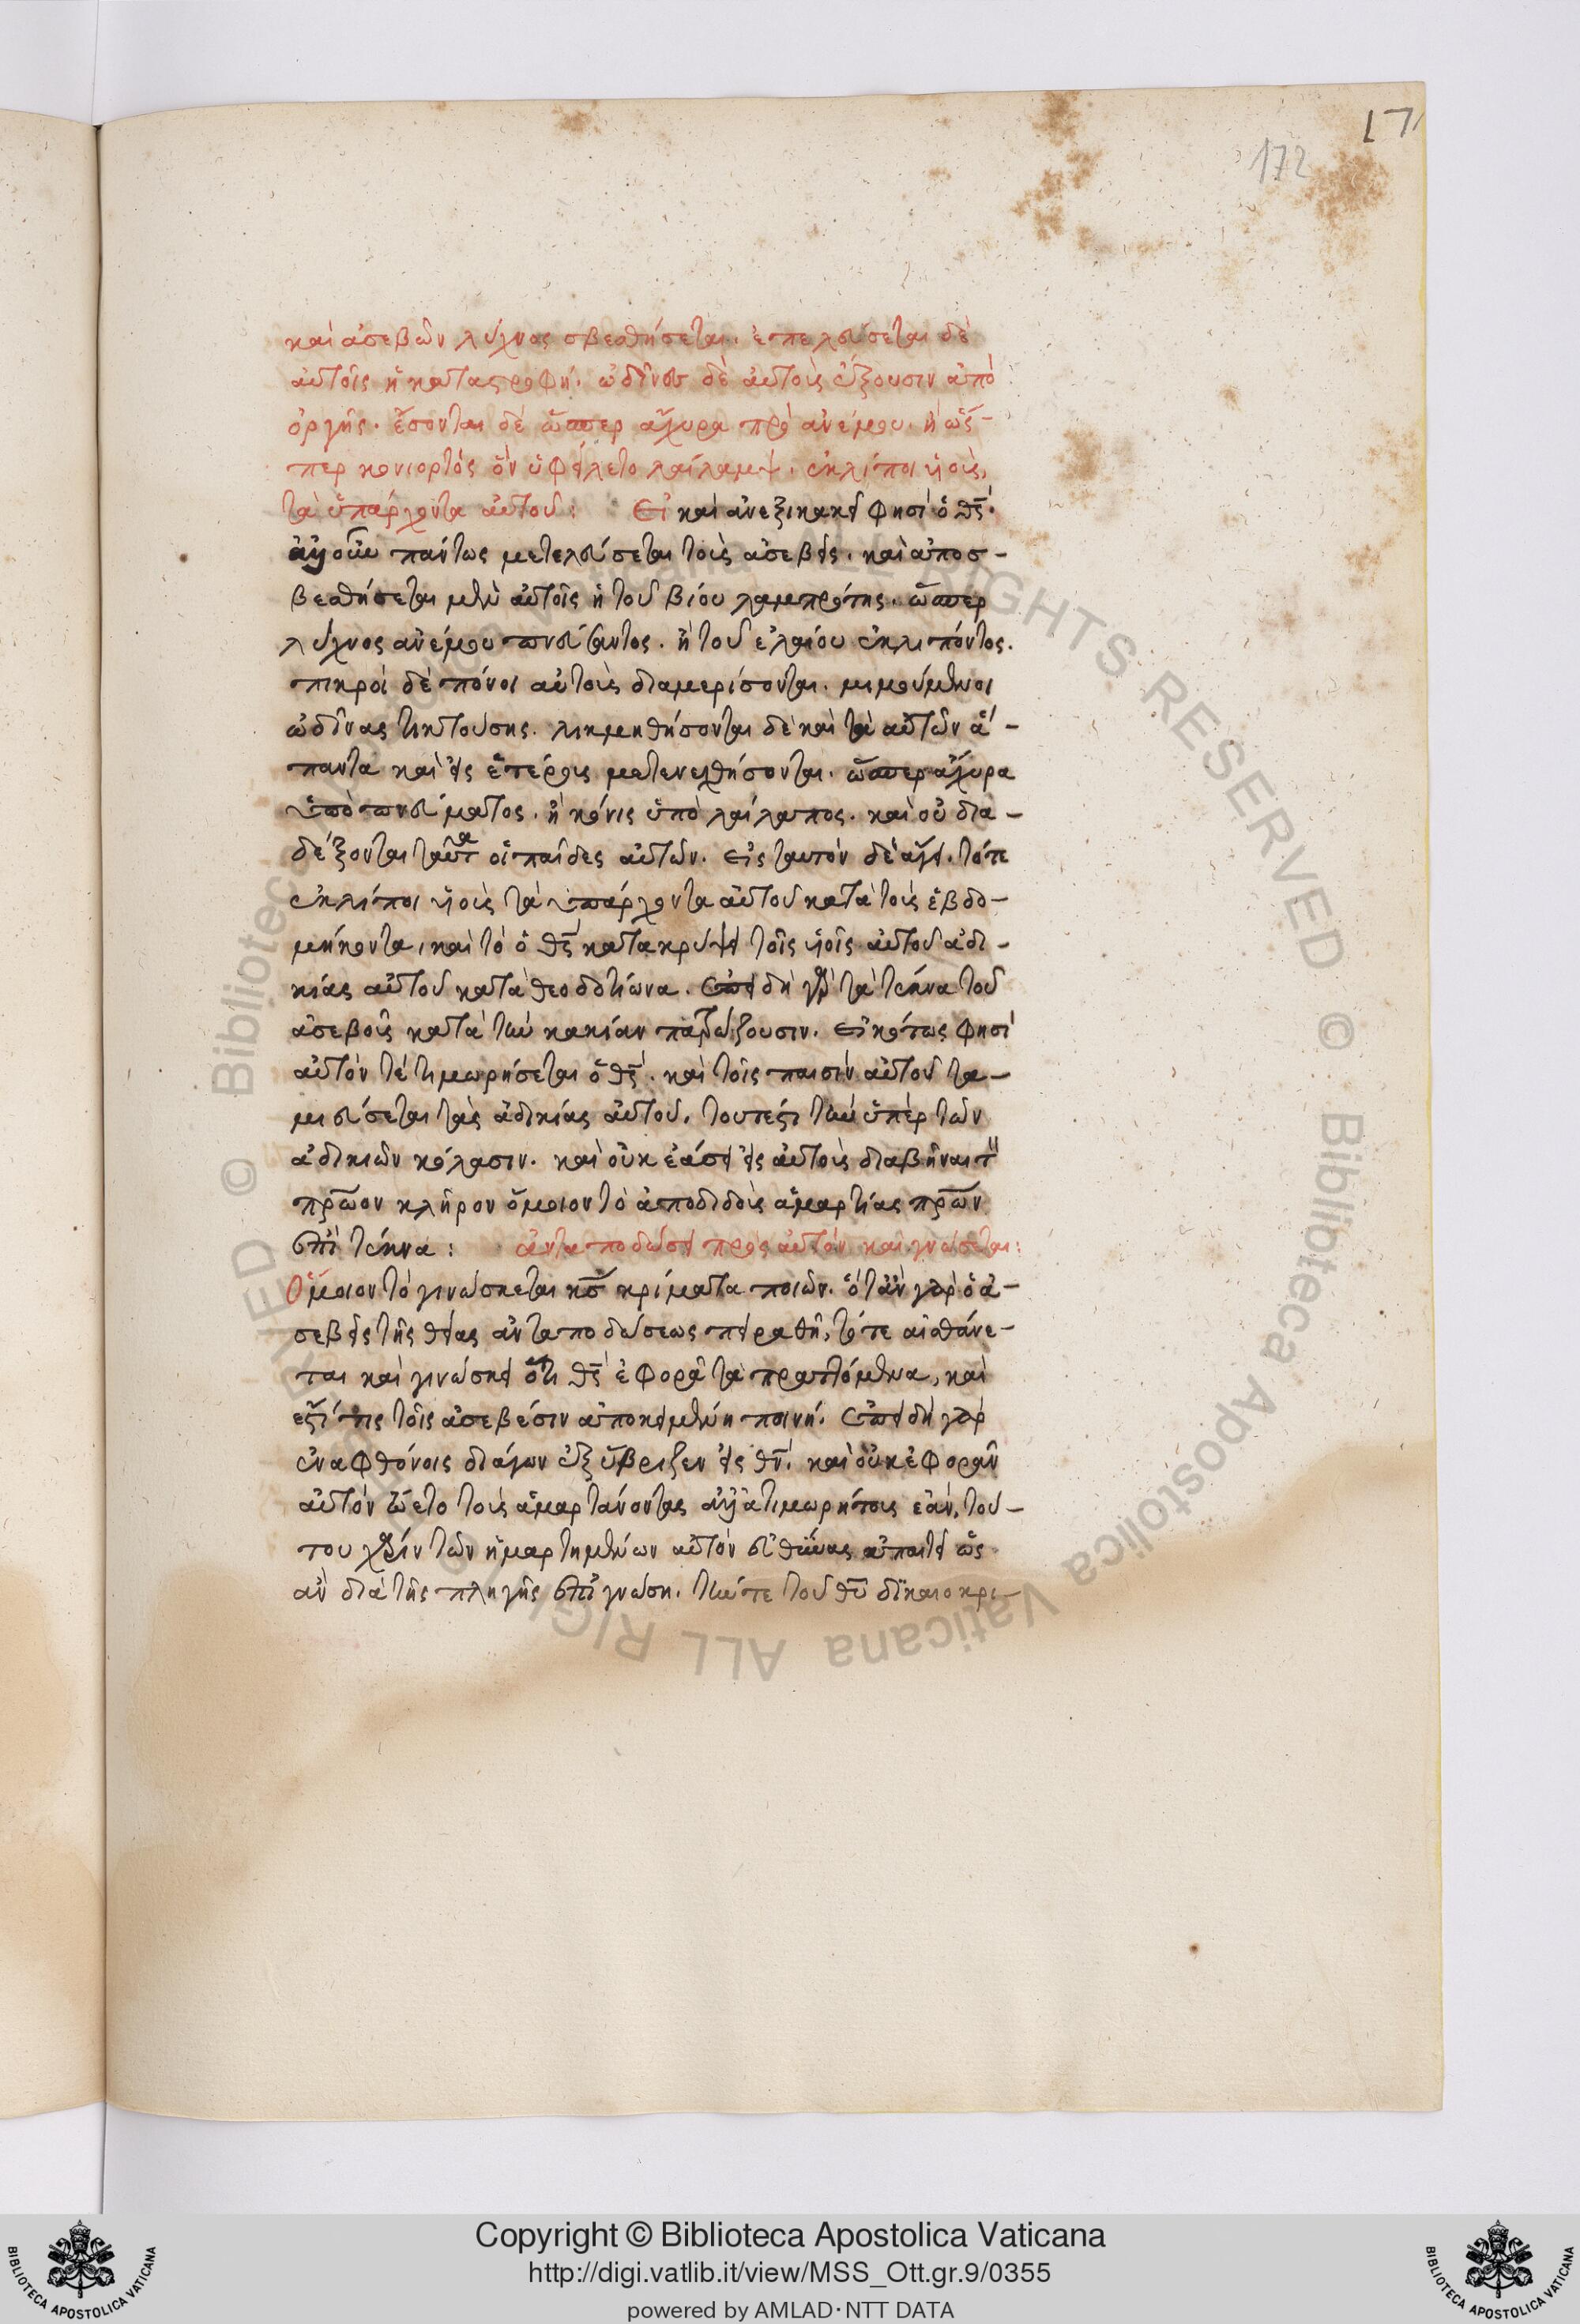 171
172
καὶ ἀσεβῶν λύχνος σβεσθήσεται. ἐπελεύσεται δὲ
αὐτοῖς ἡ καταστροφή. ὠδῖνες δὲ αὐτοὺς ἕξουσιν ἀπὸ
ὀργῆς. ἔσονται δὲ ὥσπερ ἄχυρα πρὸ ἀνέμου. ἢ ὥσ-
περ κονιορτὸς ὃν ὑφείλετο λαίλαψ. ἐκλίποι υἱοὺς
τὰ ὑπάρχοντα αὐτοῦ: Εἰ καὶ ἀνεξικακεῖ φησὶ ὁ θς.
ἀλλ' οὖν πάντως μετελεύσεται τοὺς ἀσεβεῖς. καὶ ἀποσ-
βεσθήσεται μὲν αὐτοῖς ἡ τοῦ βίου λαμπρότης. ὥσπερ
λύχνος ἀνέμου πνεύσαντος. ἢ τοῦ ἐλαίου ἐκλιπόντος.
πικροὶ δὲ πόνοι αὐτοὺς διαμερίσονται. μιμούμενοι
ὠδῖνας τικτούσης. λικμηθήσονται δὲ καὶ τὰ αὐτῶν ἅ-
παντα καὶ εἰς ἑτέρους μετενεχθήσονται. ὥσπερ ἄχυρα
ὑπὸ πνεύματος. ἢ κόνις ὑπὸ λαίλαπος. καὶ οὐ δια-
δέξονται ταῦτα οἱ παῖδες αὐτῶν. εἰς ταυτὸν δὲ ἄγει. τότε
ἐκλίποι υἱοὺς τὰ ὑπάρχοντα αὐτοῦ κατὰ τοὺς ἑβδο-
μήκοντα, καὶ τὸ ὁ θς κατακρύψει τοῖς υἱοῖς αὐτοῦ ἀδι-
κίας αὐτοῦ κατὰ θεοδοτίωνα. ἐπειδὴ γὰρ τὰ τέκνα τοῦ
ἀσεβοῦς κατὰ τὴν κακίαν πατρώζουσιν. εἰκότως φησὶ
αὐτόν τε τιμωρήσεται ὁ θς. καὶ τοῖς παισὶν αὐτοῦ τα-
μιεύσεται τὰς ἀδικίας αὐτοῦ. τουτέστι τὴν ὑπὲρ τῶν
ἀδικιῶν κόλασιν. καὶ οὐκ ἐάσει εἰς αὐτοὺς διαβῆναι τὸν
πρῶον κλῆρον ὅμοιον τὸ ἀποδιδοὺς ἁμαρτίας πρων
ἐπὶ τέκνα: ἀνταποδώσει πρὸς αὐτὸν καὶ γνώσεται:
Ὅμοιον τὸ γινώσκεται κς κρίματα ποιῶν. ὅταν γὰρ ὁ ἀ-
σεβὴς τῆς θείας ἀνταποδώσεως πειραθῇ, τότε αἰσθάνε-
ται καὶ γινώσκει ὅτι θς ἐφορᾷ τὰ πραττόμενα, καὶ
ἐστί τις τοῖς ἀσεβέσιν ἀποκειμένη ποινή. ἐπειδὴ γὰρ
ἐν ἀφθόνοις διάγων ἐξύβριζεν εἰς θν. καὶ οὐκ ἐφορᾶν
αὐτὸν ᾤετο τοὺς ἁμαρτάνοντας ἀλλ' ἀτιμωρήτους ἐᾶν, τού-
του χάριν τῶν ἡμαρτημένων αὐτὸν εὐθύνας ἀπαιτεῖ ὡς
ἂν διὰ τῆς πληγῆς ἐπιγνώσῃ. τήν τε τοῦ θυ δικαιοκρι-
Copyright © Biblioteca Apostolica Vaticana
http://digi.vatlib.it/view/MSS_Ott.gr.9/0355
powered by AMLAD·NTT DATA